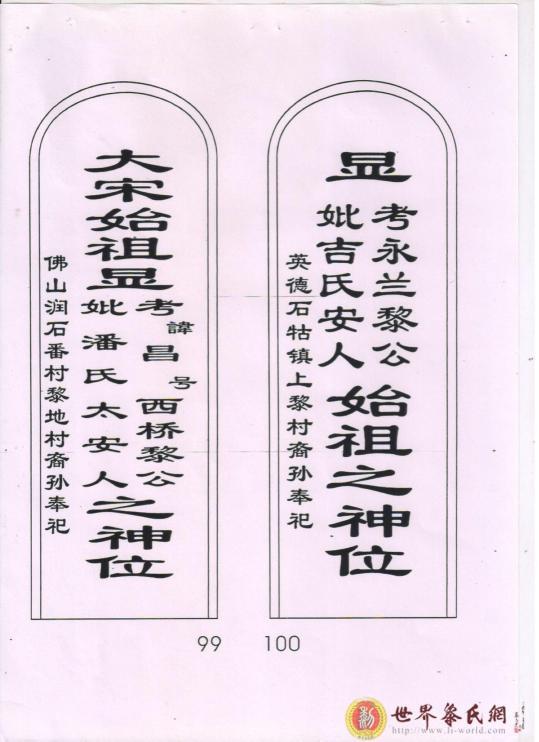 显
考永兰黎公
妣吉氏安人
始祖之神位
英德石牯镇上黎村裔孙奉祀
大宋始祖显
考諱昌号西桥黎公
妣潘氏太安人
之神位
佛山润石番村黎地村裔孙奉祀
99
100
世界黎氏網
http://www.li-world.com